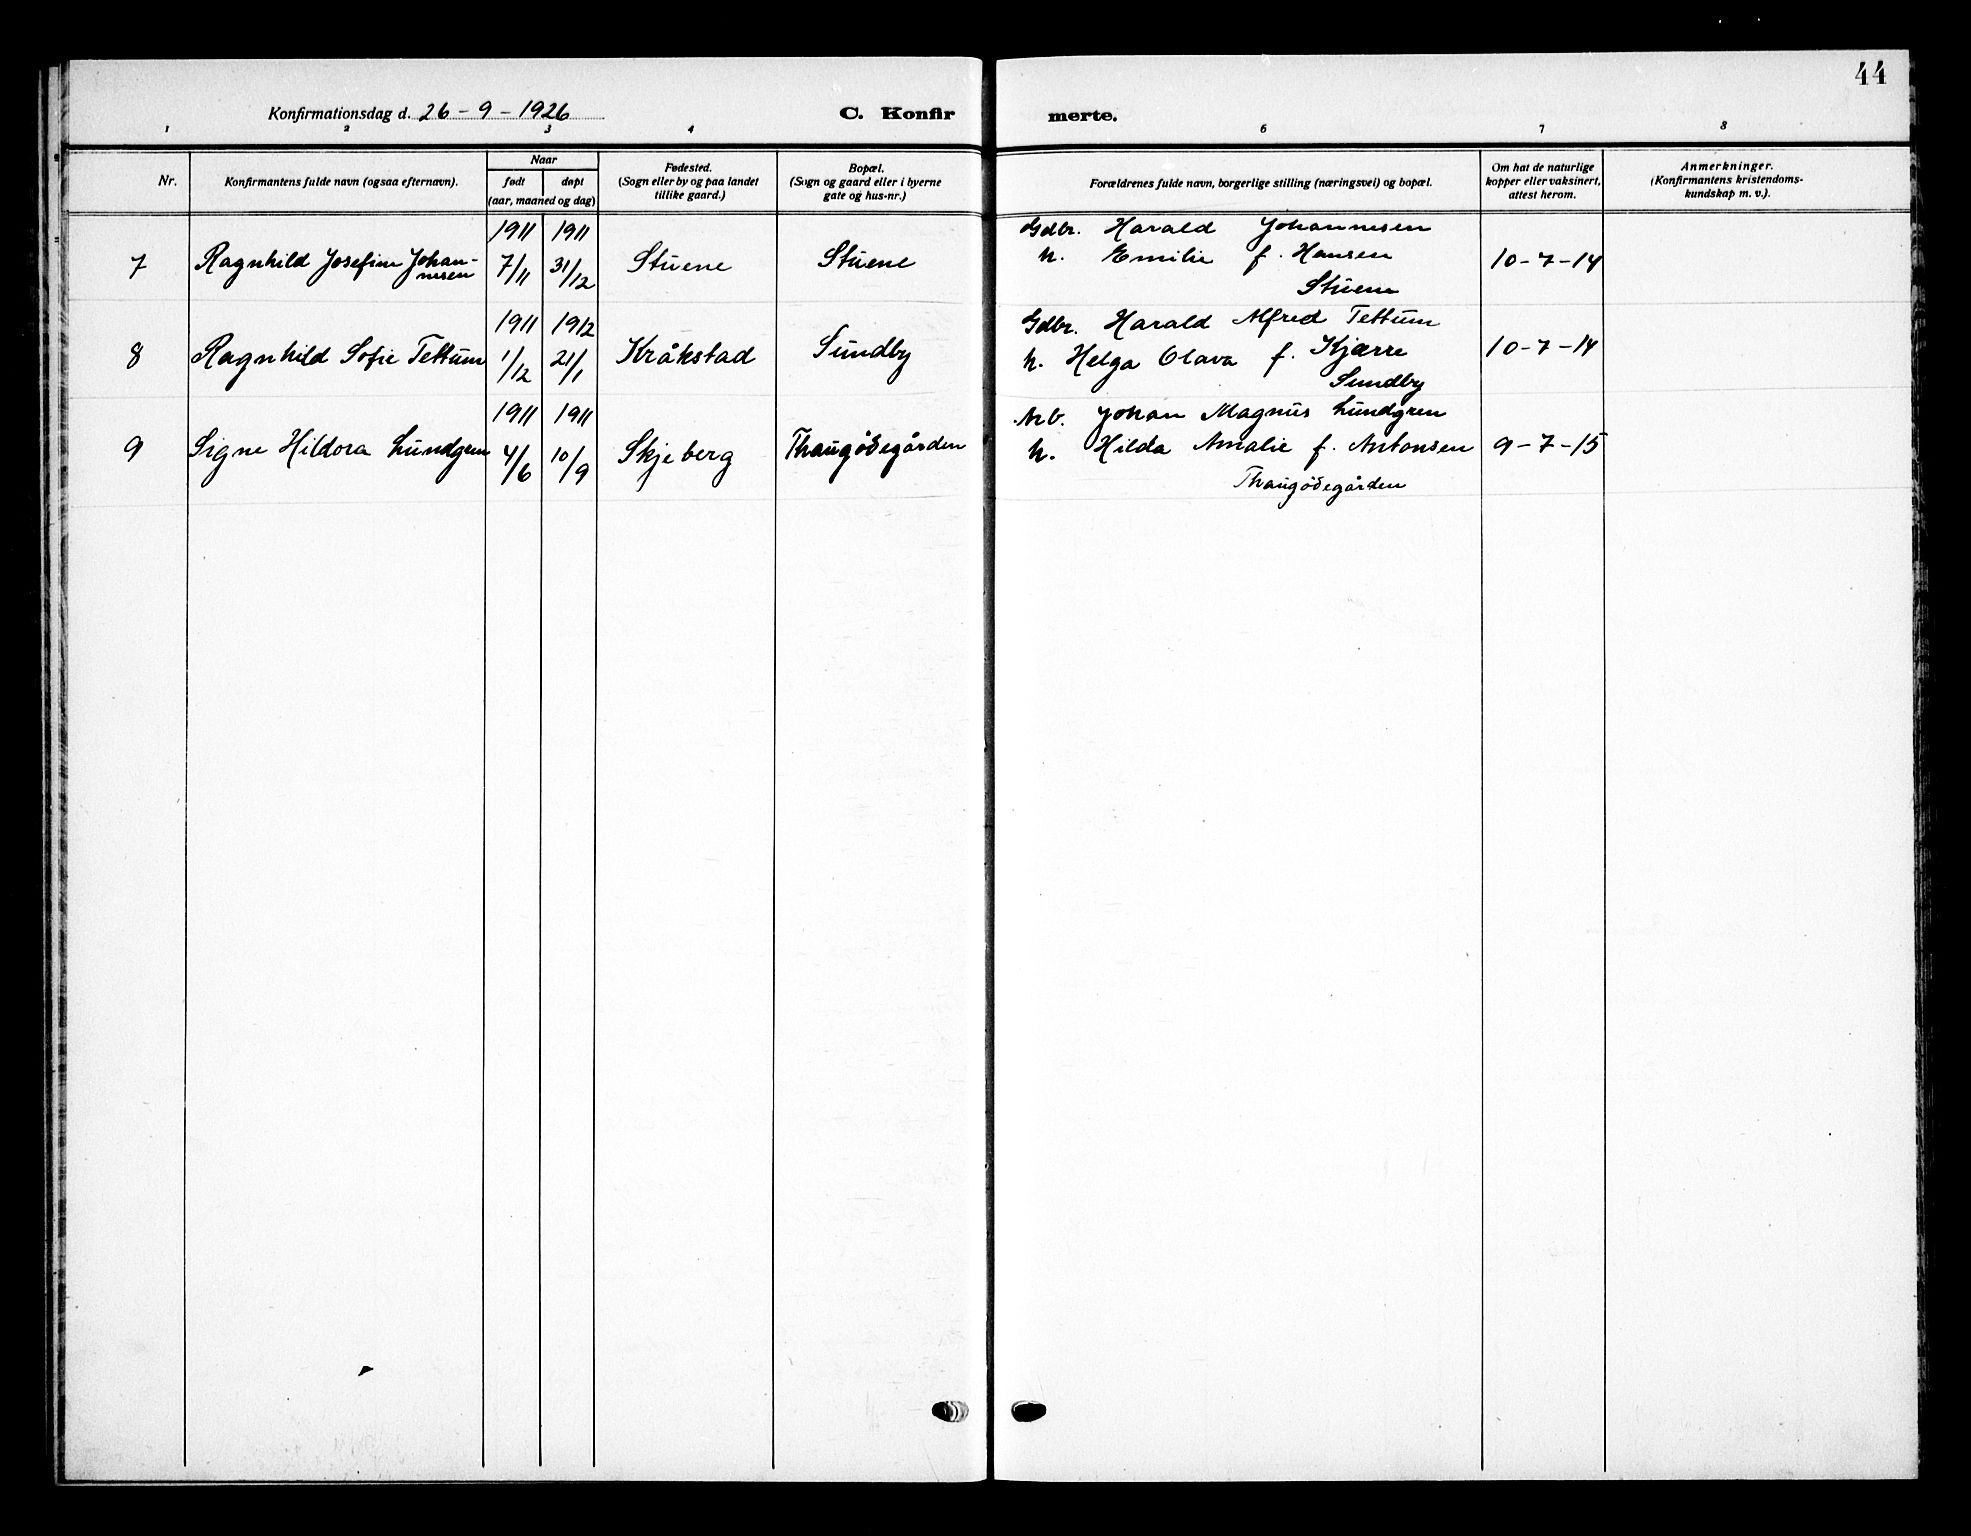 44
Konfirmationsdag d. 26 - 9 - 1926
C. Konfir
merte.
1 2 3 4 6 7 8
Nr.
Konfirmantens fulde navn (ogsaa efternavn).
Naar
født døpt
(aar, maaned og dag)
Fødested.
(Sogn eller by og paa landet
tillike gaard.)
Bopæl.
(Sogn og gaard eller i byerne
gate og hus-nr.)
Forældrenes fulde navn, borgerlige stilling (næringsvei) og bopæl.
Om hat de naturlige
kopper eller vaksinert,
attest herom.
Anmerkninger.
(Konfirmantens kristendoms-
kundskap m. v.).
1911 1911
7 Ragnhild Josefine Johan-
nesen
7/11 31/12 Stuene Stuene
Gdbr. Harald Johannesen
h. Emilie f. Hansen
Stuene
10-7-14
1911 1912
8 Ragnhild Sofie Tettum 1/12 21/1 Kråkstad Sundby
Gdbr. Harald Alfred Tettum
h. Helga Olava f. Kjærre
Sundby
10-7-14
1911 1911
9 Signe Hildora Lundgren 4/6 10/9 Skjeberg Thaugødegården
Arb. Johan Magnus Lundgren
h. Hilda Amalie f. Antonsen
Thaugødegården
9-7-15